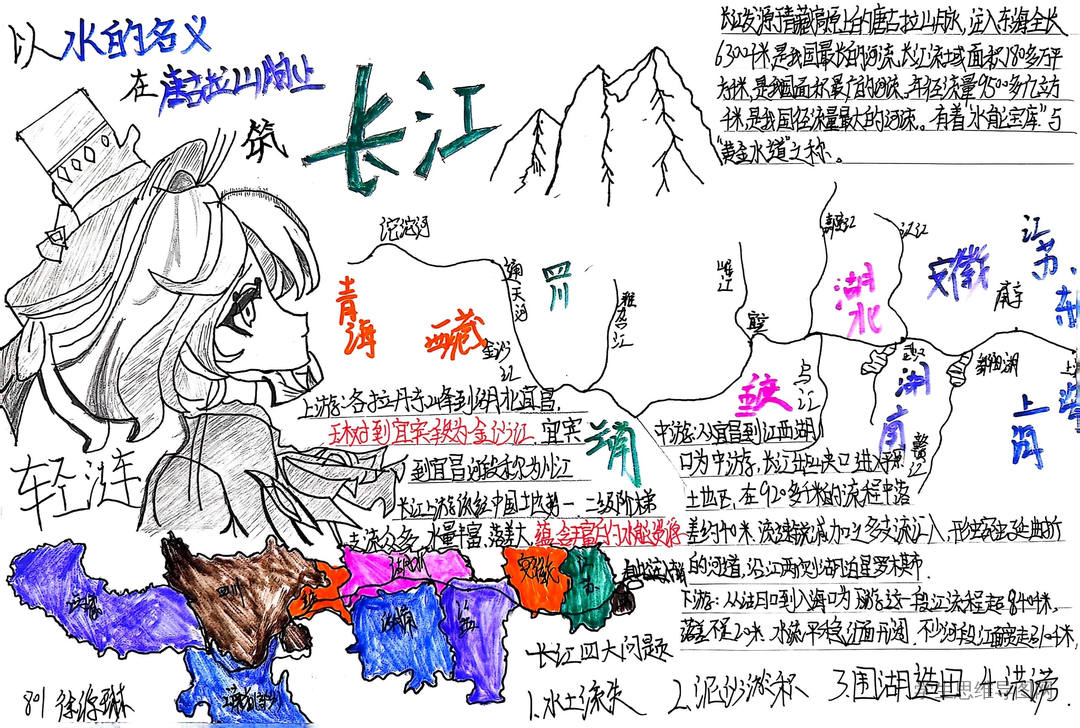 以水的名义
在唐古拉山脉上
筑
长江
长江发源于青藏高原上的唐古拉山脉，注入东海全长
6300千米，是我国最长的河流，长江流域面积180多万平
方米，是我国面积最广的河流。年径流量9500多亿立方
千米，是我国径流量最大的河流。有着“水能宝库”与
“黄金水道”之称。
沱沱河
通天河
青海
西藏
四川
金沙江
雅砻江
岷江
嘉陵江
汉江
湖北
安徽
江苏
南京
云南
重庆
乌江
武汉
湖南
赣江
鄱阳湖
上海
上游：各拉丹冬峰到湖北宜昌，
玉树到宜宾段为金沙江，宜宾
到宜昌河段称为川江
长江上游流经中国土地第一、二级阶梯
支流众多，水量丰富，落差大，蕴含丰富的水能资源
中游：从宜昌到江西湖
口为中游，长江开山夹口进入平原
土地区，在920多千米的流程中落
差约40米，流速锐减加之多支流汇入，形生弯曲曲折
的河道，沿江两次湖泊星罗棋布．
下游：从湖口到入海口为下游这一段江流程超840千米，
落差不足20米，水流平稳江面开阔，不少河段江面宽走310千米，
轻涟
四川
湖北
安徽
江苏
长江四大问题
1.水土流失
2.泥沙淤积
3.围湖造田
4.洪涝．
801
思维导图